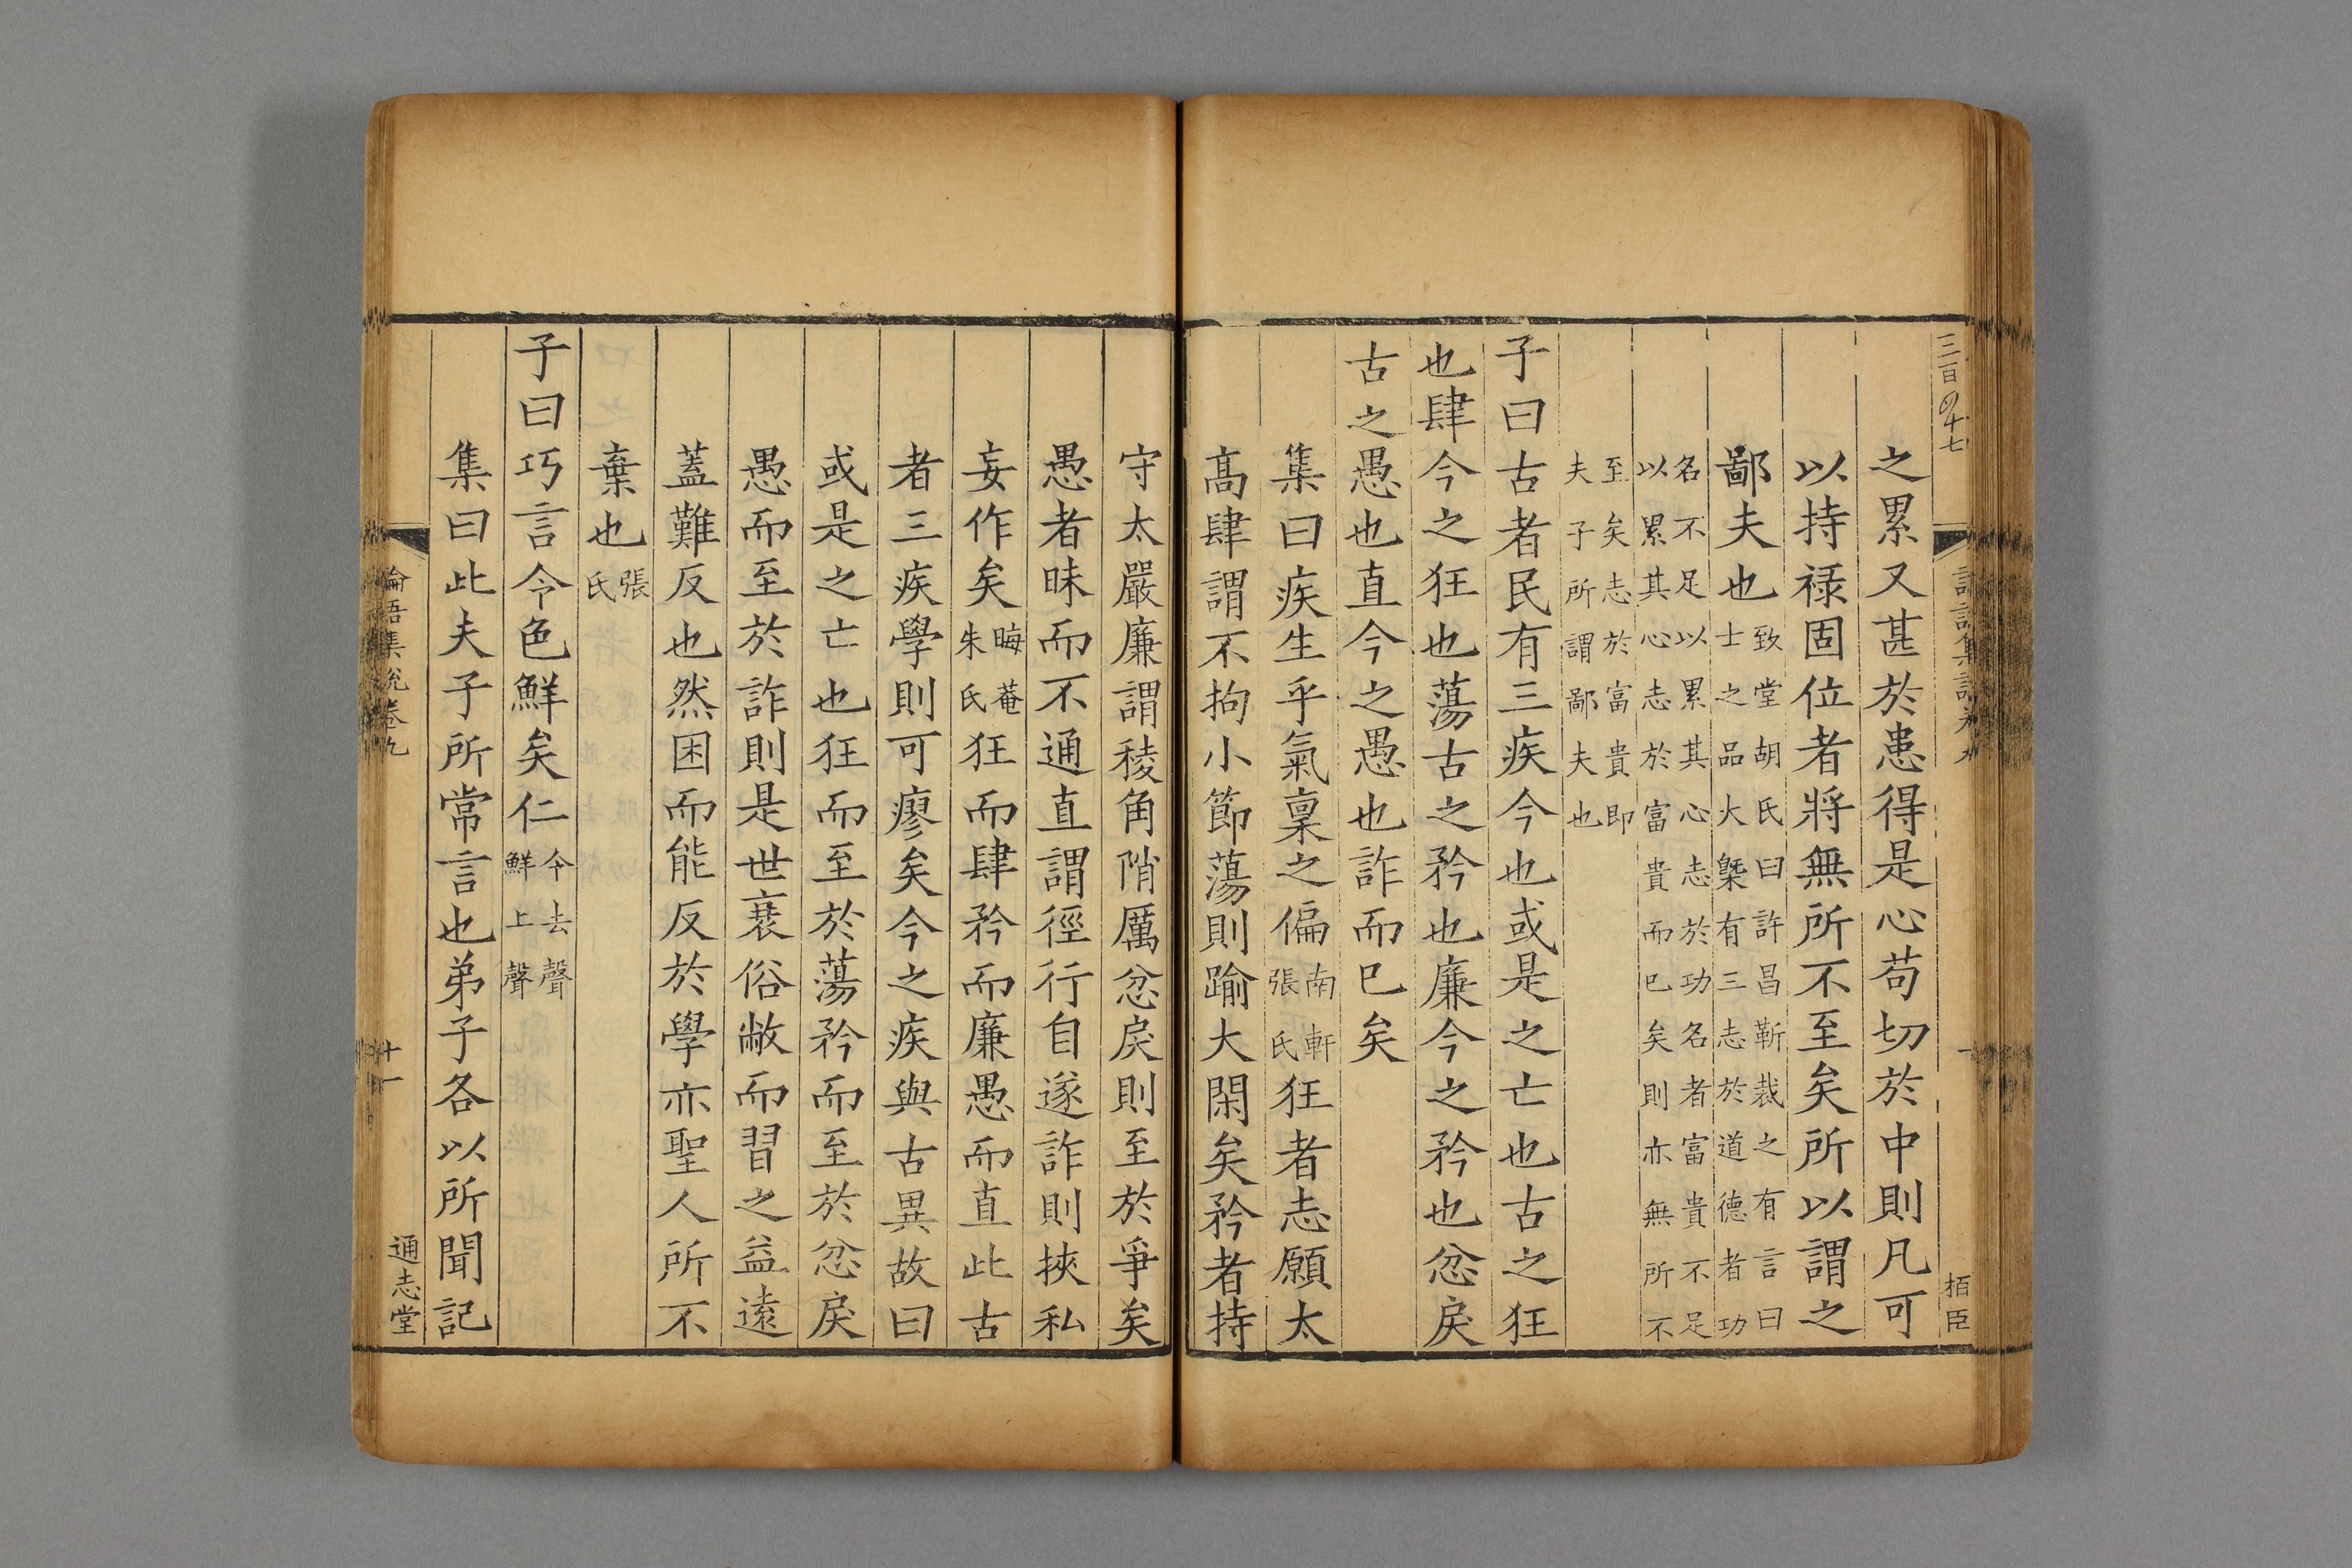 三百四十七
之累又甚於患得是心苟切於中則凡可
以持禄固位者將無所不至矣所以謂之
鄙夫也致堂胡氏曰許昌靳裁之有言曰士之品大槩有三志於道德者功
名不足以累其心志於功名者富貴不足以累其心志於富貴而已矣則亦無所不
至矣志於富貴即夫子所謂鄙夫也
子曰古者民有三疾今也或是之亡也古之狂
也肆今之狂也蕩古之矜也廉今之矜也忿戾
古之愚也直今之愚也詐而已矣
集曰疾生乎氣稟之偏南軒張氏狂者志願太
高肆謂不拘小節蕩則踰大閑矣矜者持
守太嚴廉謂稜角陗厲忿戾則至於爭矣
愚者昧而不通直謂徑行自遂詐則挾私
妄作矣晦菴朱氏狂而肆矜而廉愚而直此古
者三疾學則可瘳矣今之疾與古異故曰
或是之亡也狂而至於蕩矜而至於忿戾
愚而至於詐則是世衰俗敝而習之益遠
蓋難反也然困而能反於學亦聖人所不
棄也張氏
子曰巧言令色鮮矣仁令去聲鮮上聲
集曰此夫子所常言也弟子各以所聞記
論語集說卷九
十一
通志堂
栢臣